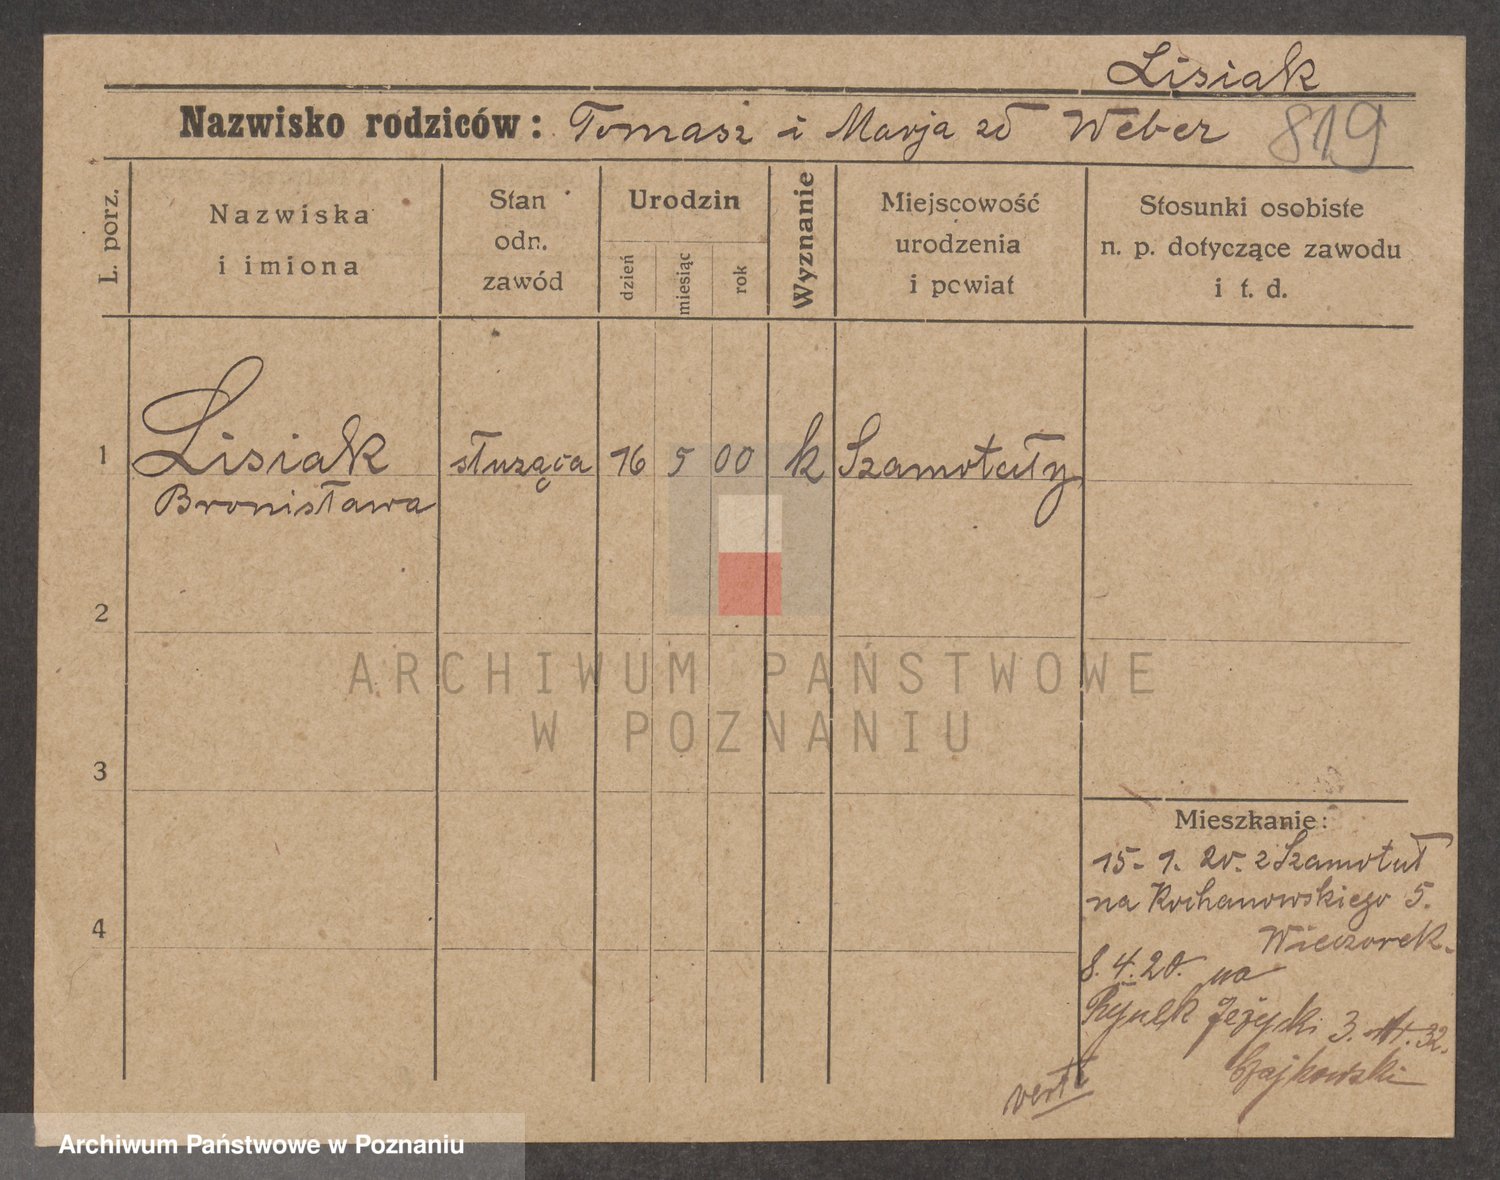 Lisiak
Nazwisko rodziców: Tomasz i Marja zd Weber 819
L. porz.
Nazwiska
i imiona
Stan
odn.
zawód
Urodzin
dzień
miesiąc
rok
Wyznanie
Miejscowość
urodzenia
i powiat
Stosunki osobiste
n. p. dotyczące zawodu
i t. d.
1 Lisiak służąca 16 5 00 k Szamotuły
Bronisława
2
3
4
Mieszkanie:
15. 1. 20. z Szamotuł
na Kochanowskiego 5.
Wieczorek.
8. 4. 20. na
Rynek Jeżycki 3. 32.
Czajkowski
verte
ARCHIWUM PAŃSTWOWE
W POZNANIU
Archiwum Państwowe w Poznaniu